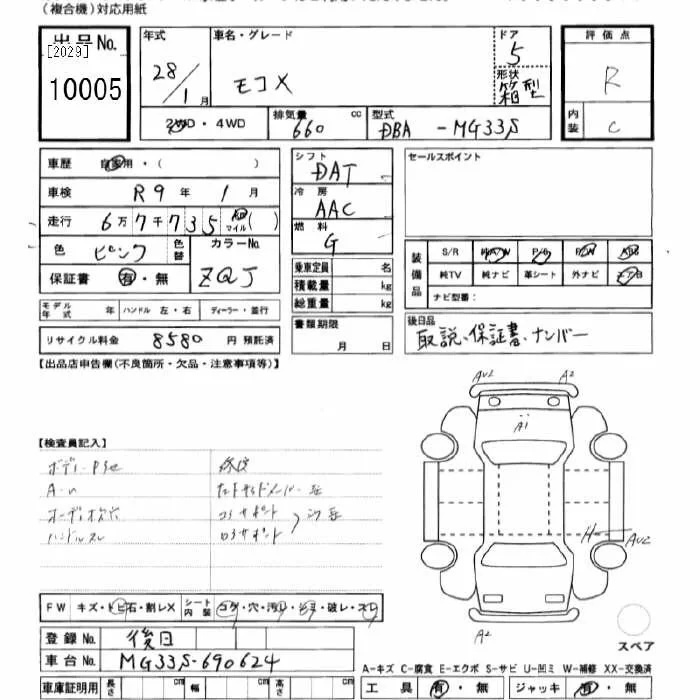 (複合機)対応用紙
出品No.
[2029]
10005
年式
28/1月
車名・グレード
モコX
ドア
5
形状
箱型
評価点
R
内装
C
2WD・4WD
排気量
660 cc
型式
DBA-MG33S
車歴 自家用・( )
車検 R9年 1月
走行 6万7千735 Km マイル( )
色 ピンク 色替
カラーNo.
ZQJ
保証書 有・無
シフト
DAT
冷房
AAC
燃料
G
セールスポイント
乗車定員 名
積載量 kg
総重量 kg
書類期限
月 日
装備品
S/R ナビ P/S P/W ABS
純TV 純ナビ 革シート 外ナビ エアB
ナビ型番:
モデル年式 年 ハンドル 左・右 ディーラー・並行
リサイクル料金 8580 円 預託済
後日品
取説、保証書、ナンバー
【出品店申告欄(不良箇所・欠品・注意事項等)】
【検査員記入】
ボディーPキズ
A-U
オーディオ欠穴
ハンドルスレ
修復
コアサポート
ロアサポート
AU2
A2
A1
AU2
A2
スペア
FW キズ・トビ石・割レX
シート内装 コゲ・穴・汚レ・シミ・破レ・スレ
登録No. 後日
車台No. MG33S-690624
車庫証明用 長さ cm 幅 cm 高さ cm
A-キズ C-腐食 E-エクボ S-サビ U-凹ミ W-補修 XX-交換済
工具 有・無 ジャッキ 有・無